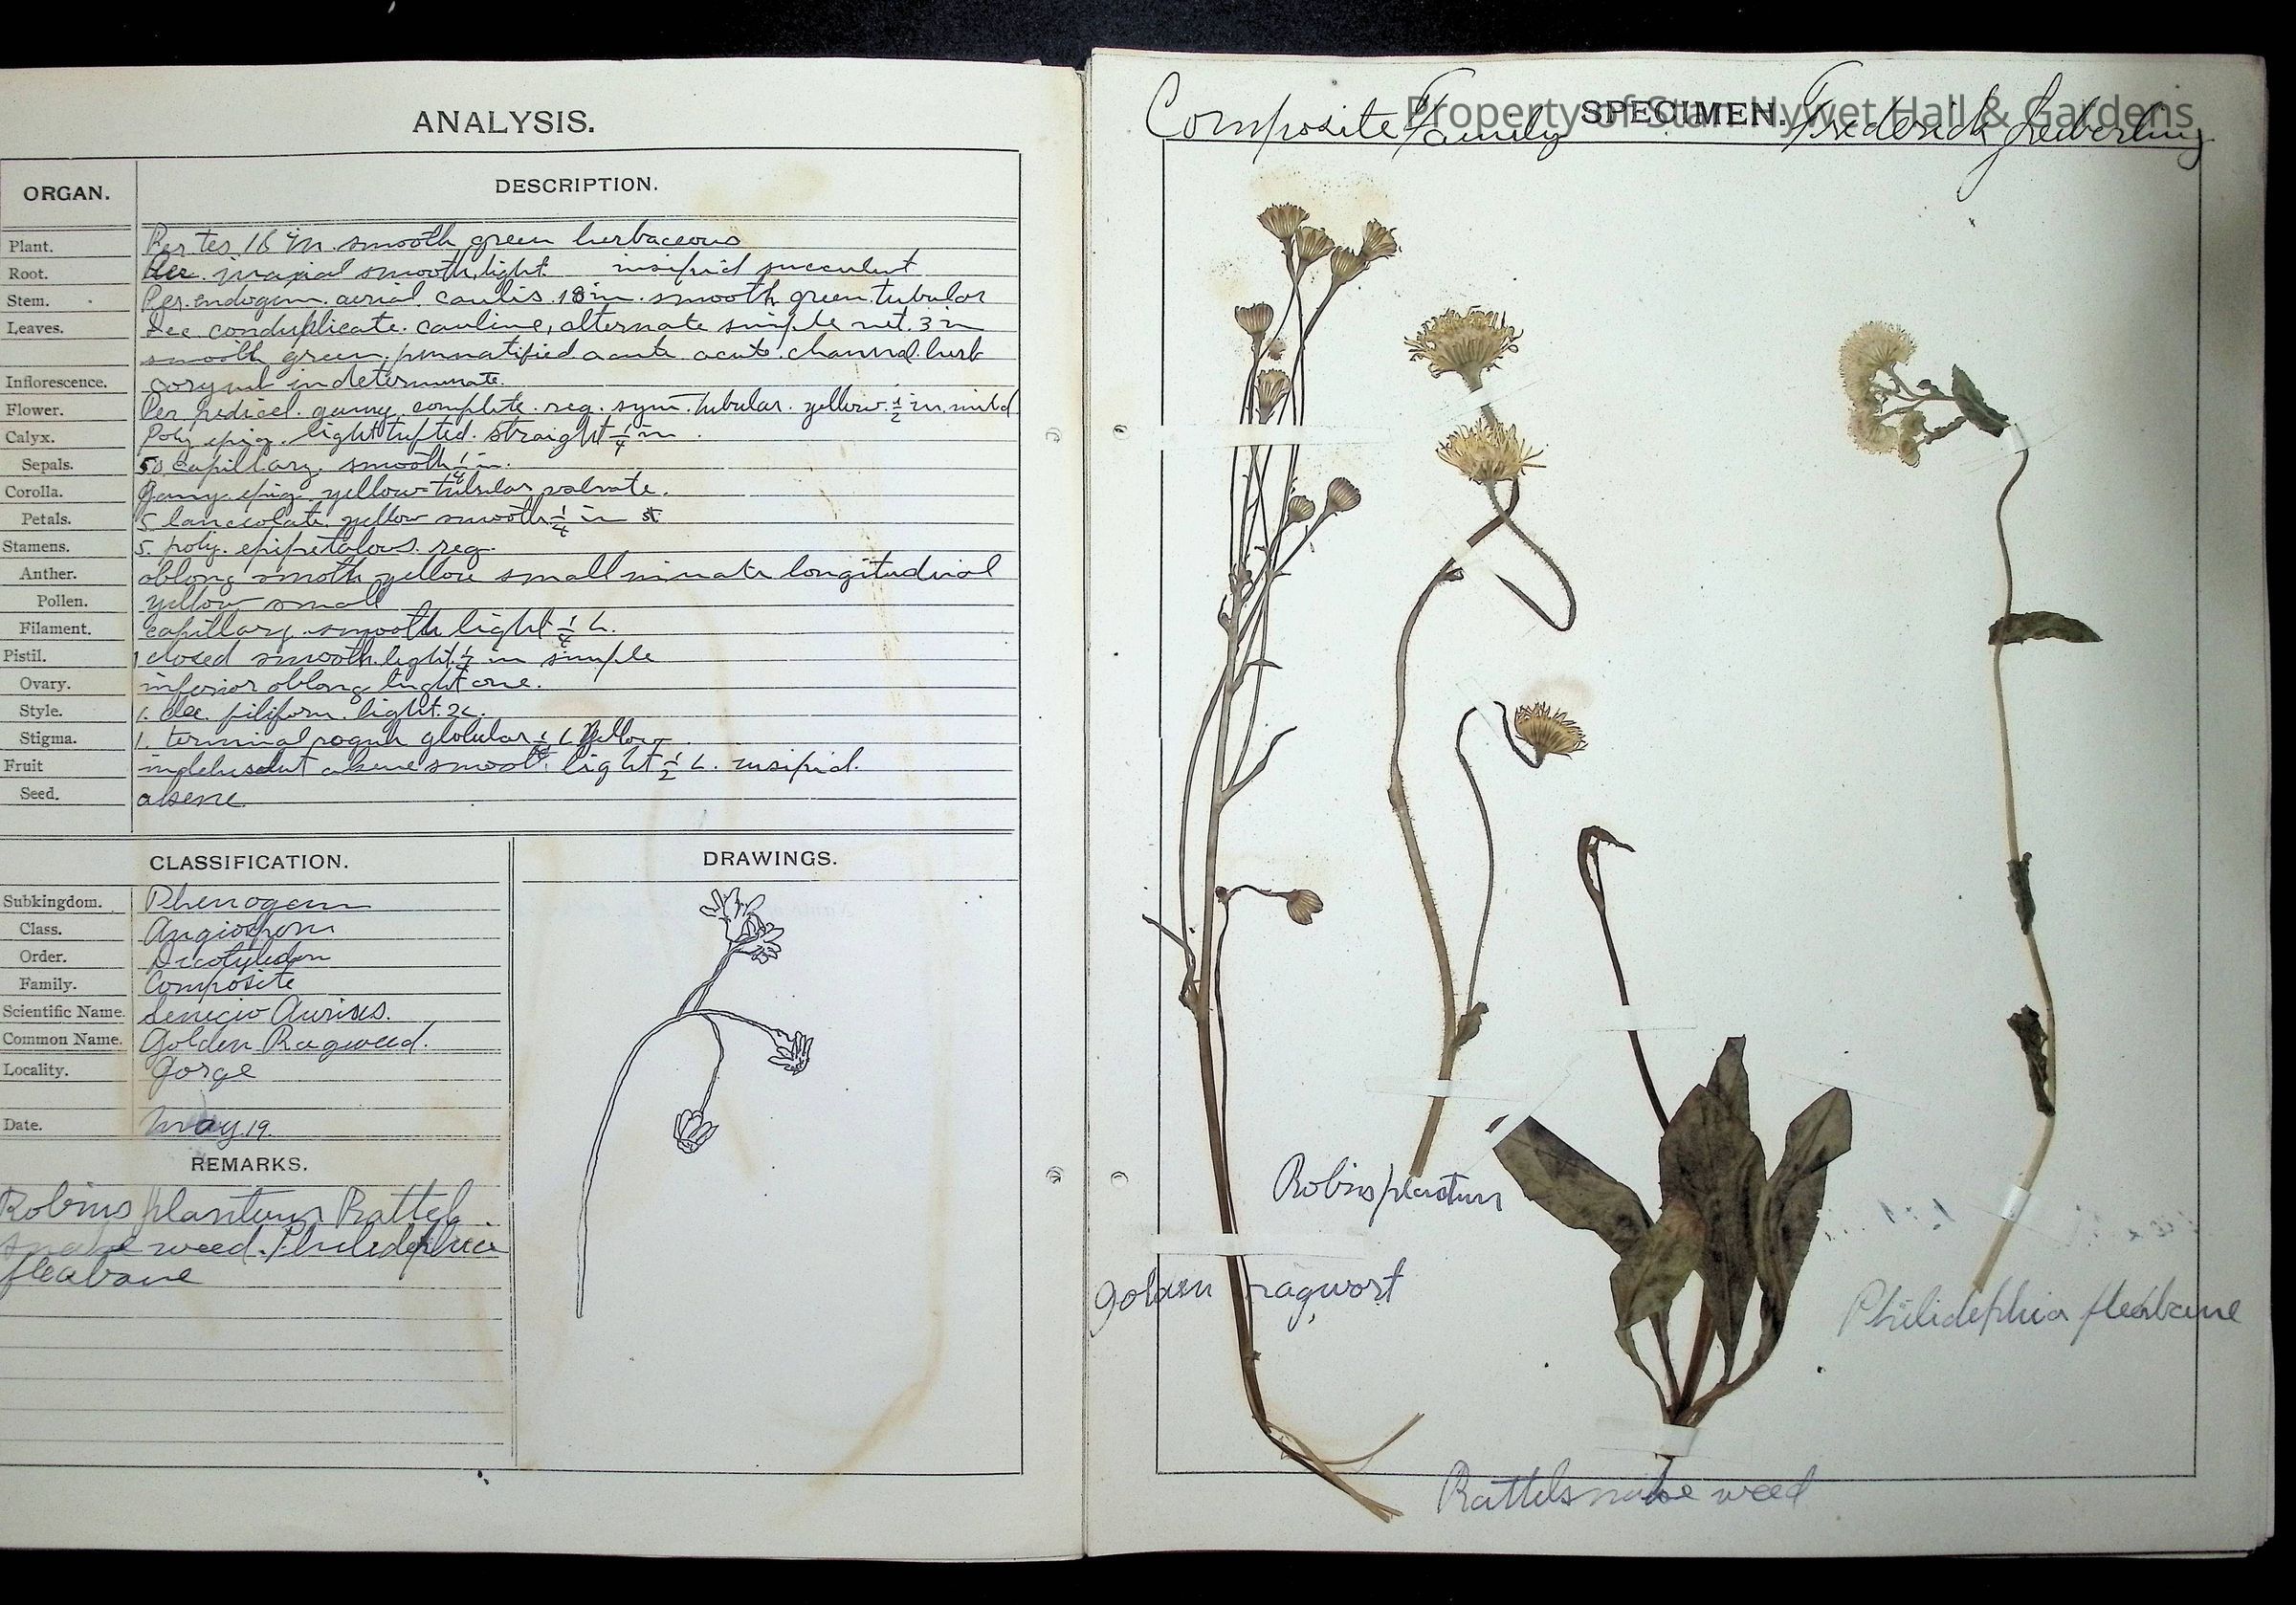 ANALYSIS.
ORGAN. DESCRIPTION.
Plant. Per ter. 18 in. smooth green herbaceous
Root. smooth light insipid succulent
Stem. Per. endogen. aerial. caulis. 18 in. smooth green tubular
Leaves. Dec conduplicate. cauline, alternate simple net. 3 in
smooth green. pinnatified acute acute. channel. herb
Inflorescence. corymb indeterminate.
Flower. Per pedicel. gamy. complete. reg. sym. tubular. yellow. 1/2 in. mild
Calyx. Poly epig. light tufted. straight 1/4 in.
Sepals. 50 capillary. smooth 1/4 in.
Corolla. Gamy epig yellow tubular valvate.
Petals. 5 lanceolate yellow smooth 1/4 in
Stamens. 5. poly. epipetalous. reg.
Anther. oblong smoth yellow small minate longitudinal
Pollen. yellow small
Filament. capillary. smooth light L.
Pistil. 1 closed smooth. light in simple
Ovary. inferior oblong light one.
Style. 1. dec. filiform. light. 2L.
Stigma. 1. terminal rough globular L yellow
Fruit indehiscent akene smooth light 1/2 L. insipid.
Seed. akene
CLASSIFICATION.
Subkingdom. Phenogam
Class. Angiosperm
Order. Dicotyledon
Family. Composite
Scientific Name. Senecio Aurius.
Common Name. Golden Ragweed.
Locality. Gorge
Date. May. 19.
REMARKS.
Robins plantum Rattel
snake weed. Philidephia
fleabane
DRAWINGS.
SPECIMEN.
Composite Family Frederick Seiberling
Property of Stan Hywet Hall & Gardens
Robins plantum
Golden ragwort
Philidephia fleabane
Rattelsnake weed